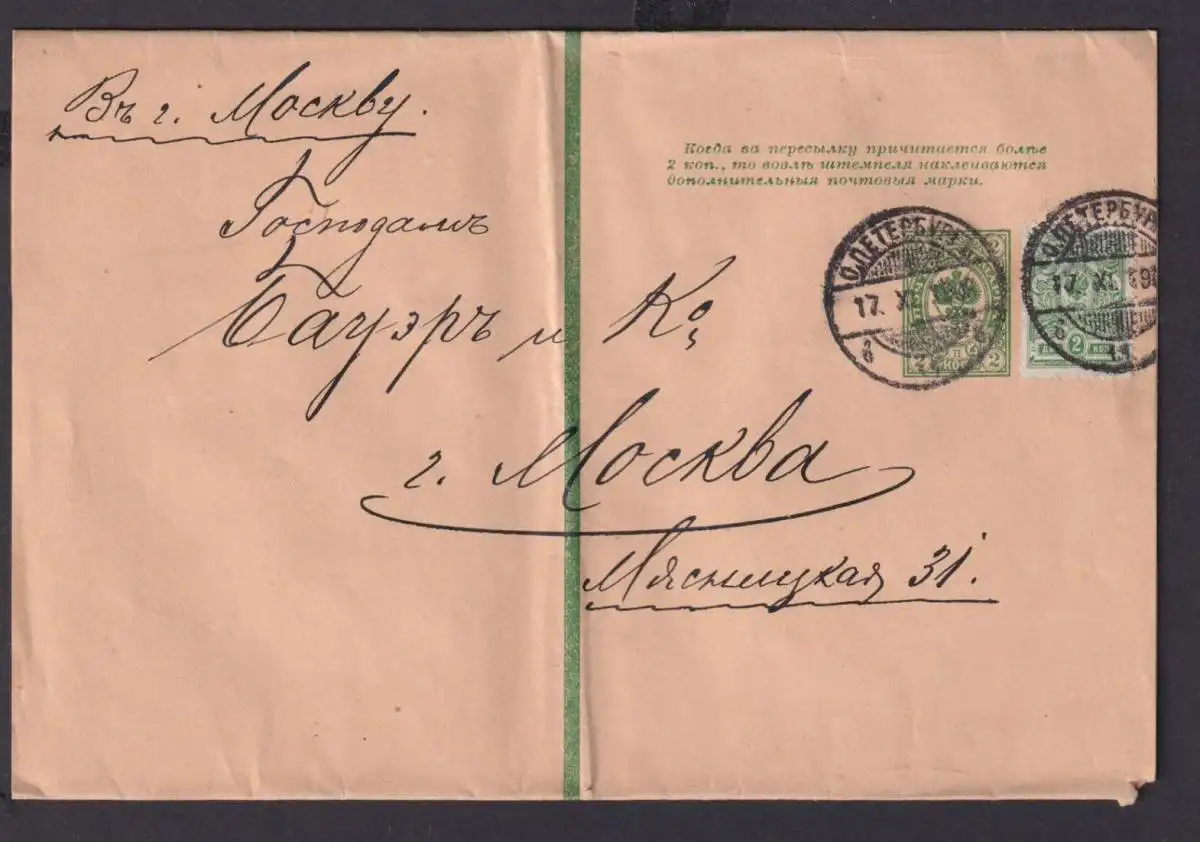 Въ г. Москву.
Господамъ
Бауэръ и Ко
г. Москва
Мясницкая 31.
Когда за пересылку причитается болѣе
2 коп., то возлѣ штемпеля наклеиваются
дополнительныя почтовыя марки.
С.ПЕТЕРБУРГЪ
17. XI.
8
2 2
КОП
2 2
С.ПЕТЕРБУРГ
17. XI.
2
КОП